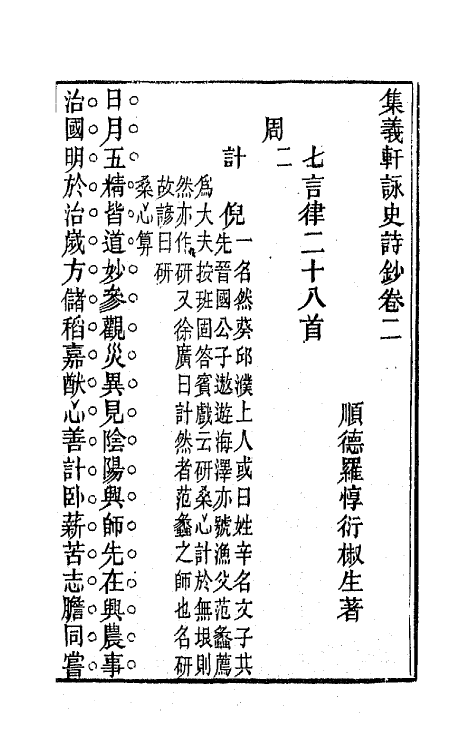 集義軒詠史詩鈔卷二
順德羅惇衍椒生著
七言律二十八首
周二
計倪
一名然葵邱濮上人或曰姓辛名文子其
先晉國公子遨遊海澤亦號漁父范蠡薦
爲大夫按班固答賓戲云研桑心計於無垠則
然亦作研又徐廣曰計然者范蠡之師也名研
故諺曰研
桑心算
日月五精皆道妙參觀災異見陰陽興師先在興農事
治國明於治歲方儲稻嘉猷心善計臥薪苦志膽同嘗